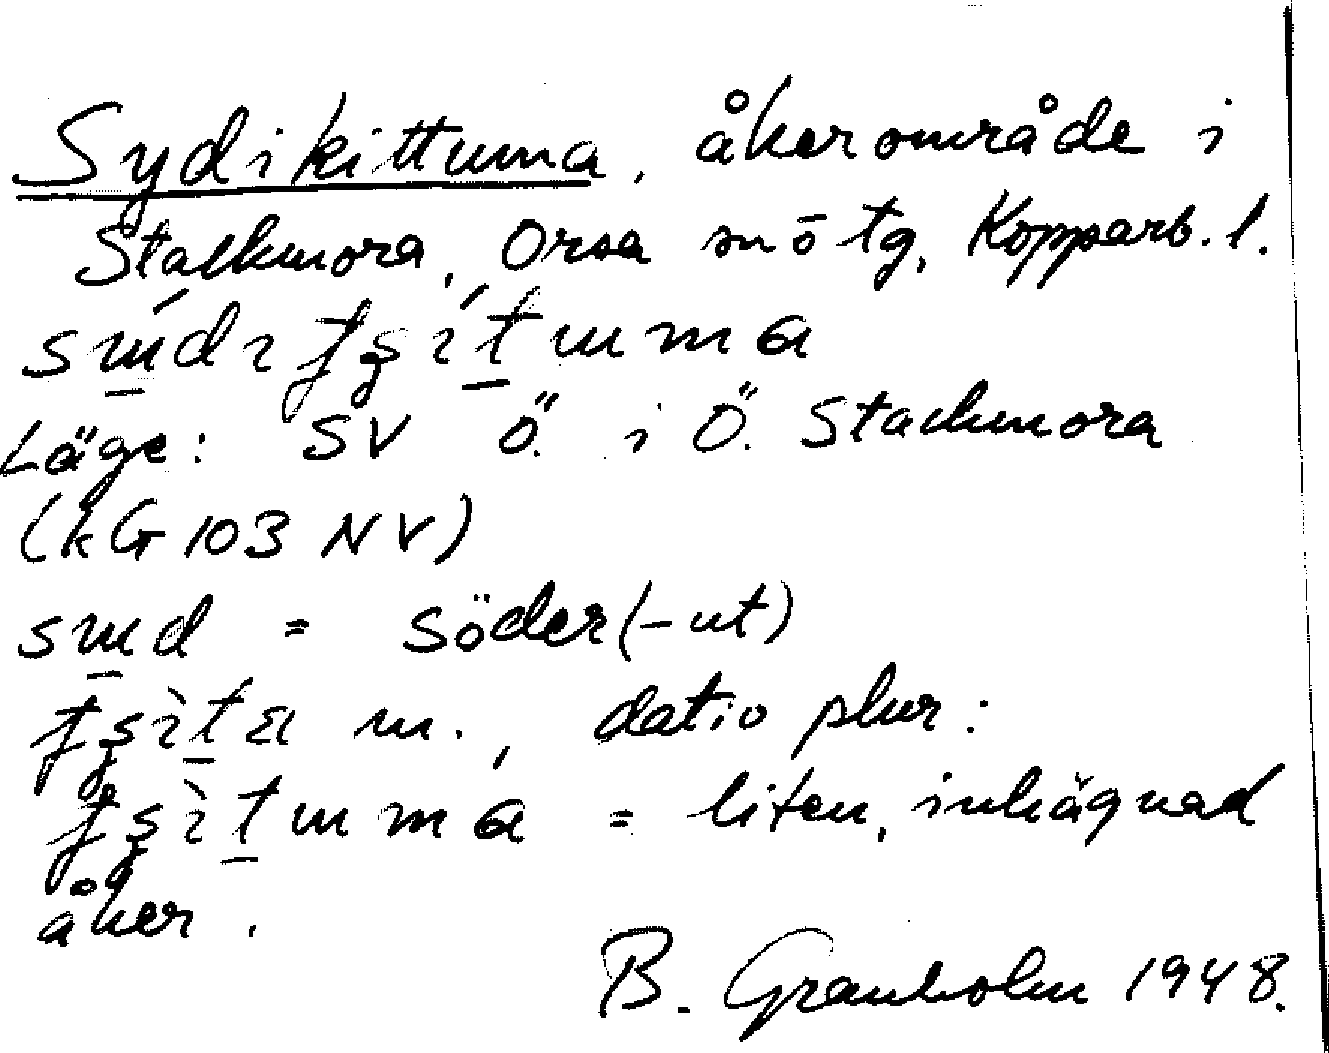 Sydikittuma, åkerområde i
Stackmora, Orsa sn ö tg, Kopparb. l.
Läge: SV Ö. i Ö. Stackmora
(kG 103 NV)
= söder(-ut)
m., dativ plur:
= liten, inhägnad
åker.
B. Granholm 1948.